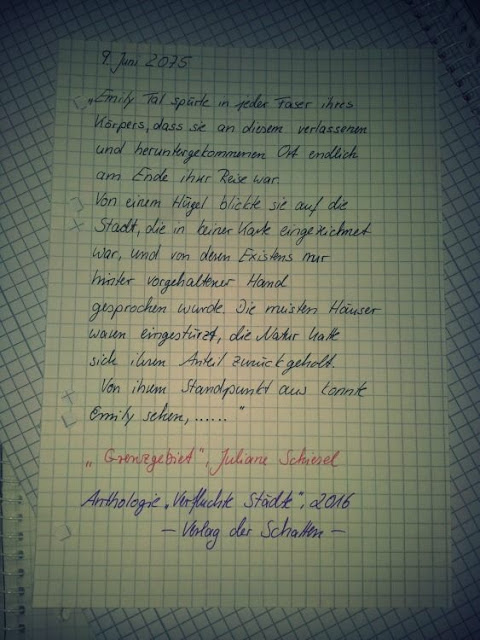 9. Juni 2075
„Emily Tal spürte in jeder Faser ihres
Körpers, dass sie an diesem verlassenen
und heruntergekommenen Ort endlich
am Ende ihrer Reise war.
Von einem Hügel blickte sie auf die
Stadt, die in keiner Karte eingezeichnet
war, und von deren Existens nur
hinter vorgehaltener Hand
gesprochen wurde. Die meisten Häuser
waren eingestürzt, die Natur hatte
sich ihren Anteil zurückgeholt.
Von ihrem Standpunkt aus konnte
Emily sehen,......"
„Grenzgebiet", Juliane Schiesel
Anthologie „Verfluchte Städte", 2016
– Verlag der Schatten –